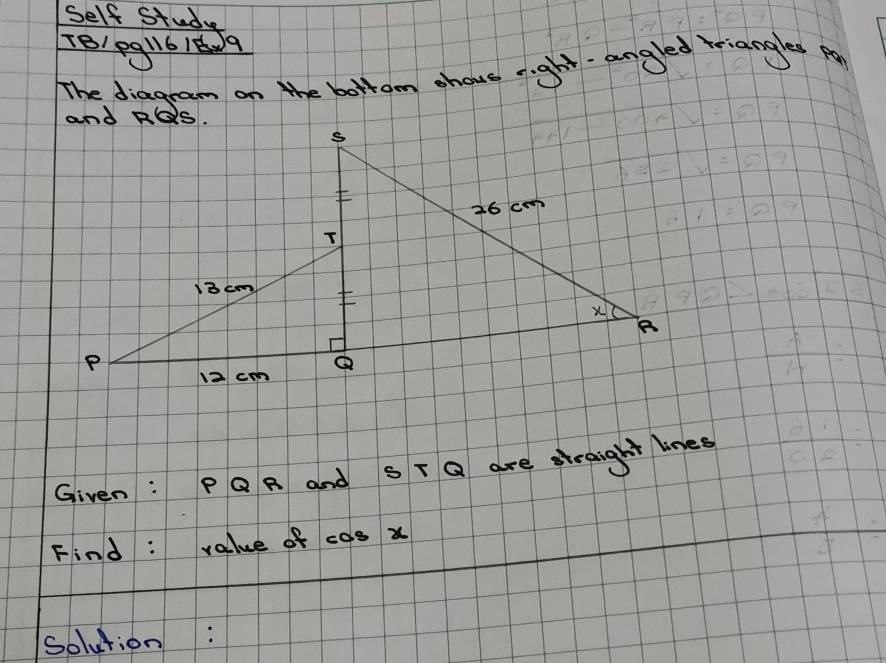 Self Study
TB/pg116/Ex9
The diagram on the bottom shows right-angled triangles
and RQS.
S
26 cm
T
13cm
x
R
P
Q
12 cm
Given : PQR and STQ are straight lines
Find : value of cos x
Solution :